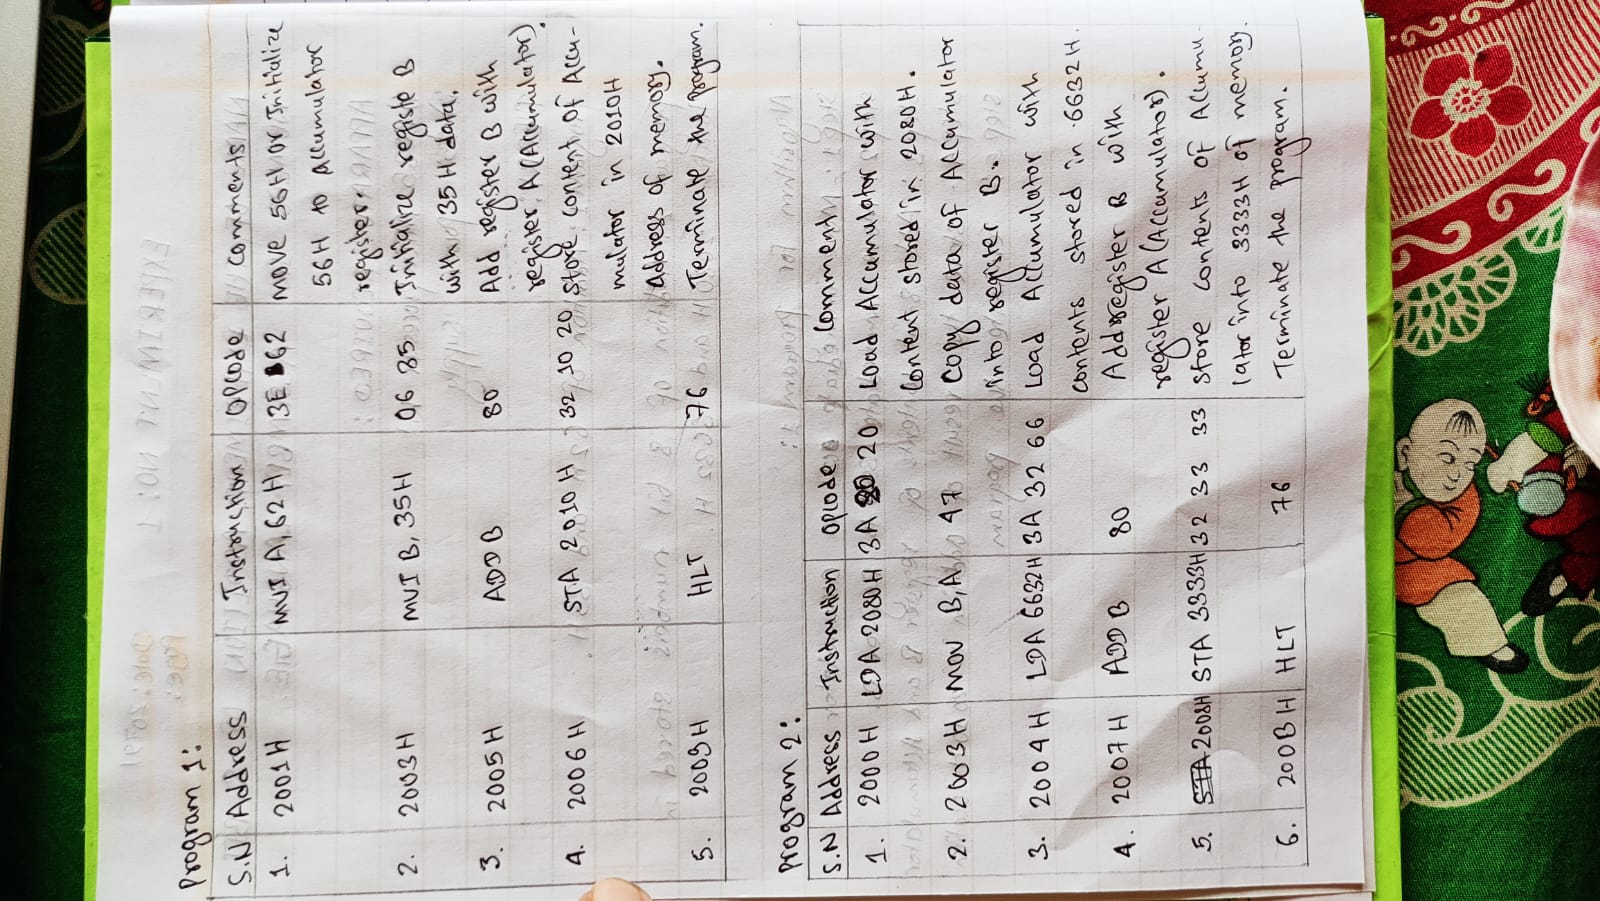 Program 1:
S.N Address Instruction Opcode comments
1. 2001H MVI A, 62H 3E 62 Move 56H or Initialize
56H to accumulator
register.
2. 2003H MVI B, 35H 06 35 Initialize registe B
with 35H data.
3. 2005H ADD B 80 Add register B with
register A (Accumulator).
4. 2006H STA 2010H 32 10 20 Store content of Accu-
mulator in 2010H
address of memory.
5. 2009H HLT 76 Terminate the program.
Program 2:
S.N Address Instruction Opcode Comment
1. 2000H LDA 2080H 3A 80 20 Load Accumulator with
Content stored in 2080H.
2. 2003H MOV B,A 47 Copy data of Accumulator
into register B.
3. 2004H LDA 6632H 3A 32 66 Load Accumulator with
contents stored in 6632H.
4. 2007H ADD B 80 Add register B with
register A (Accumulator).
5. 2008H STA 3333H 32 33 33 Store contents of Accumu-
lator into 3333H of memory
6. 200BH HLT 76 Terminate the program.